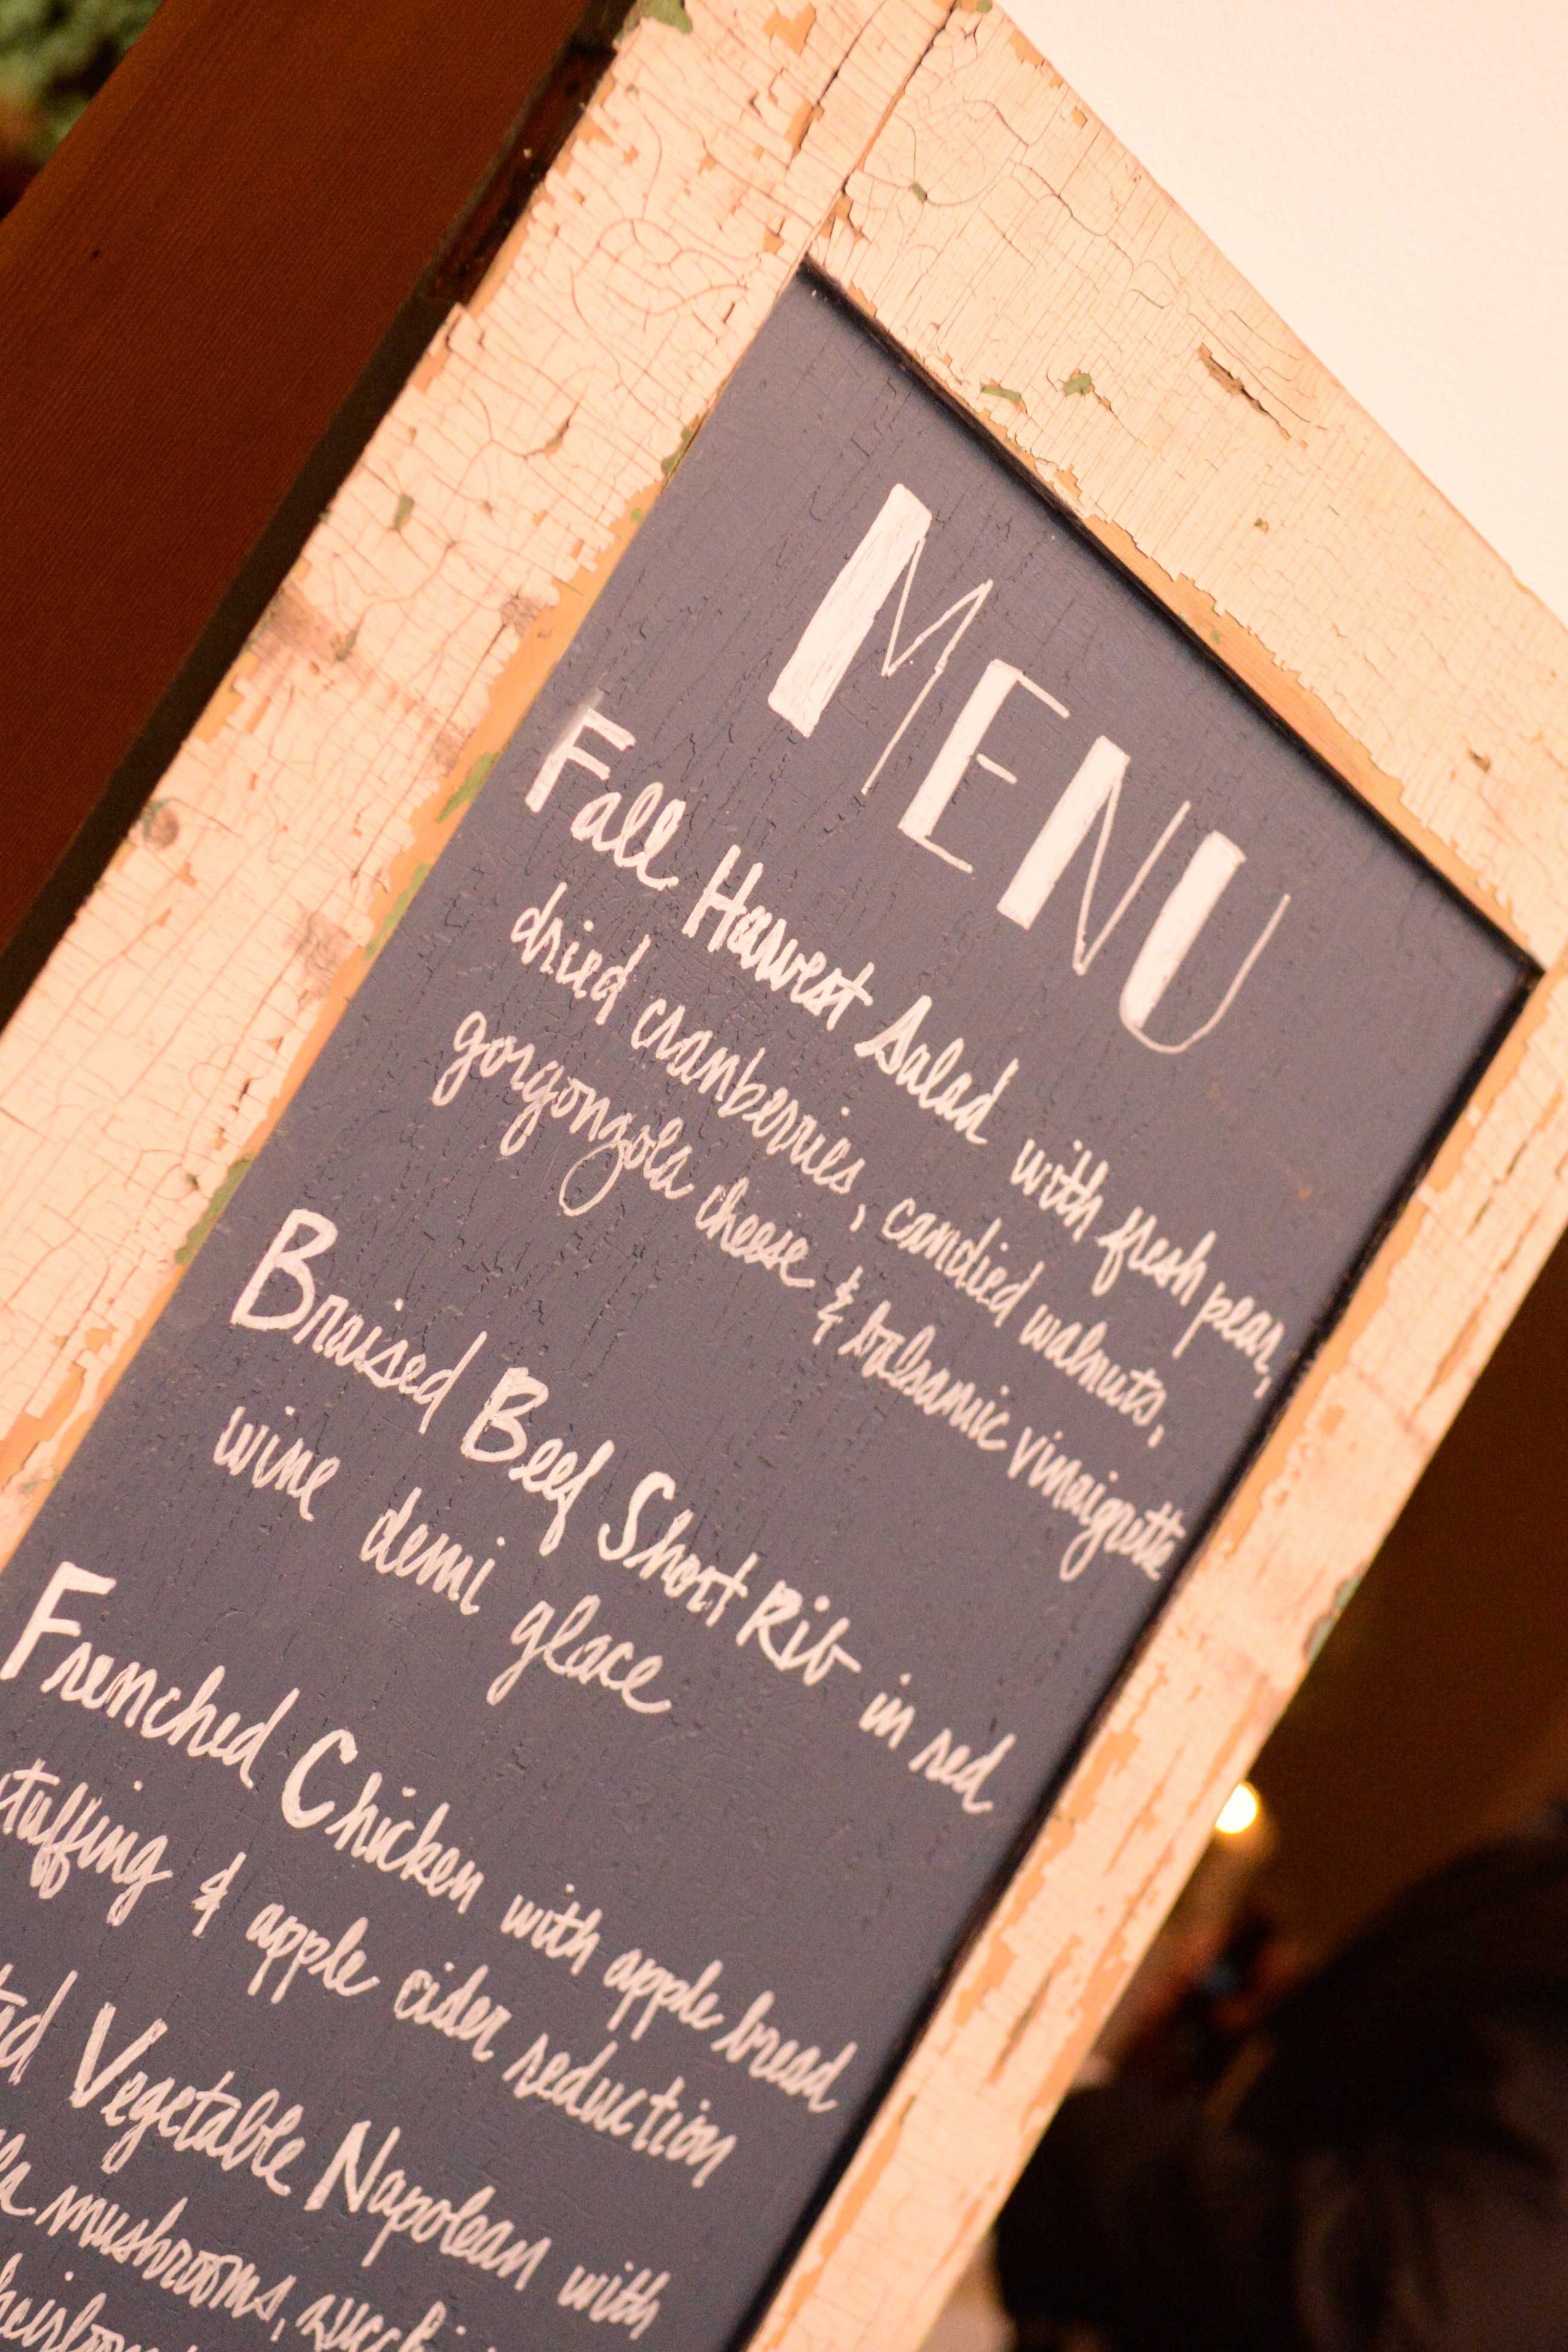 MENU
Fall Harvest Salad with fresh pear,
dried cranberries, candied walnuts,
gorgonzola cheese & balsamic vinaigrette
Braised Beef Short Rib in red
wine demi glace
Frenched Chicken with apple bread
stuffing & apple cider reduction
Vegetable Napolean with
mushrooms,